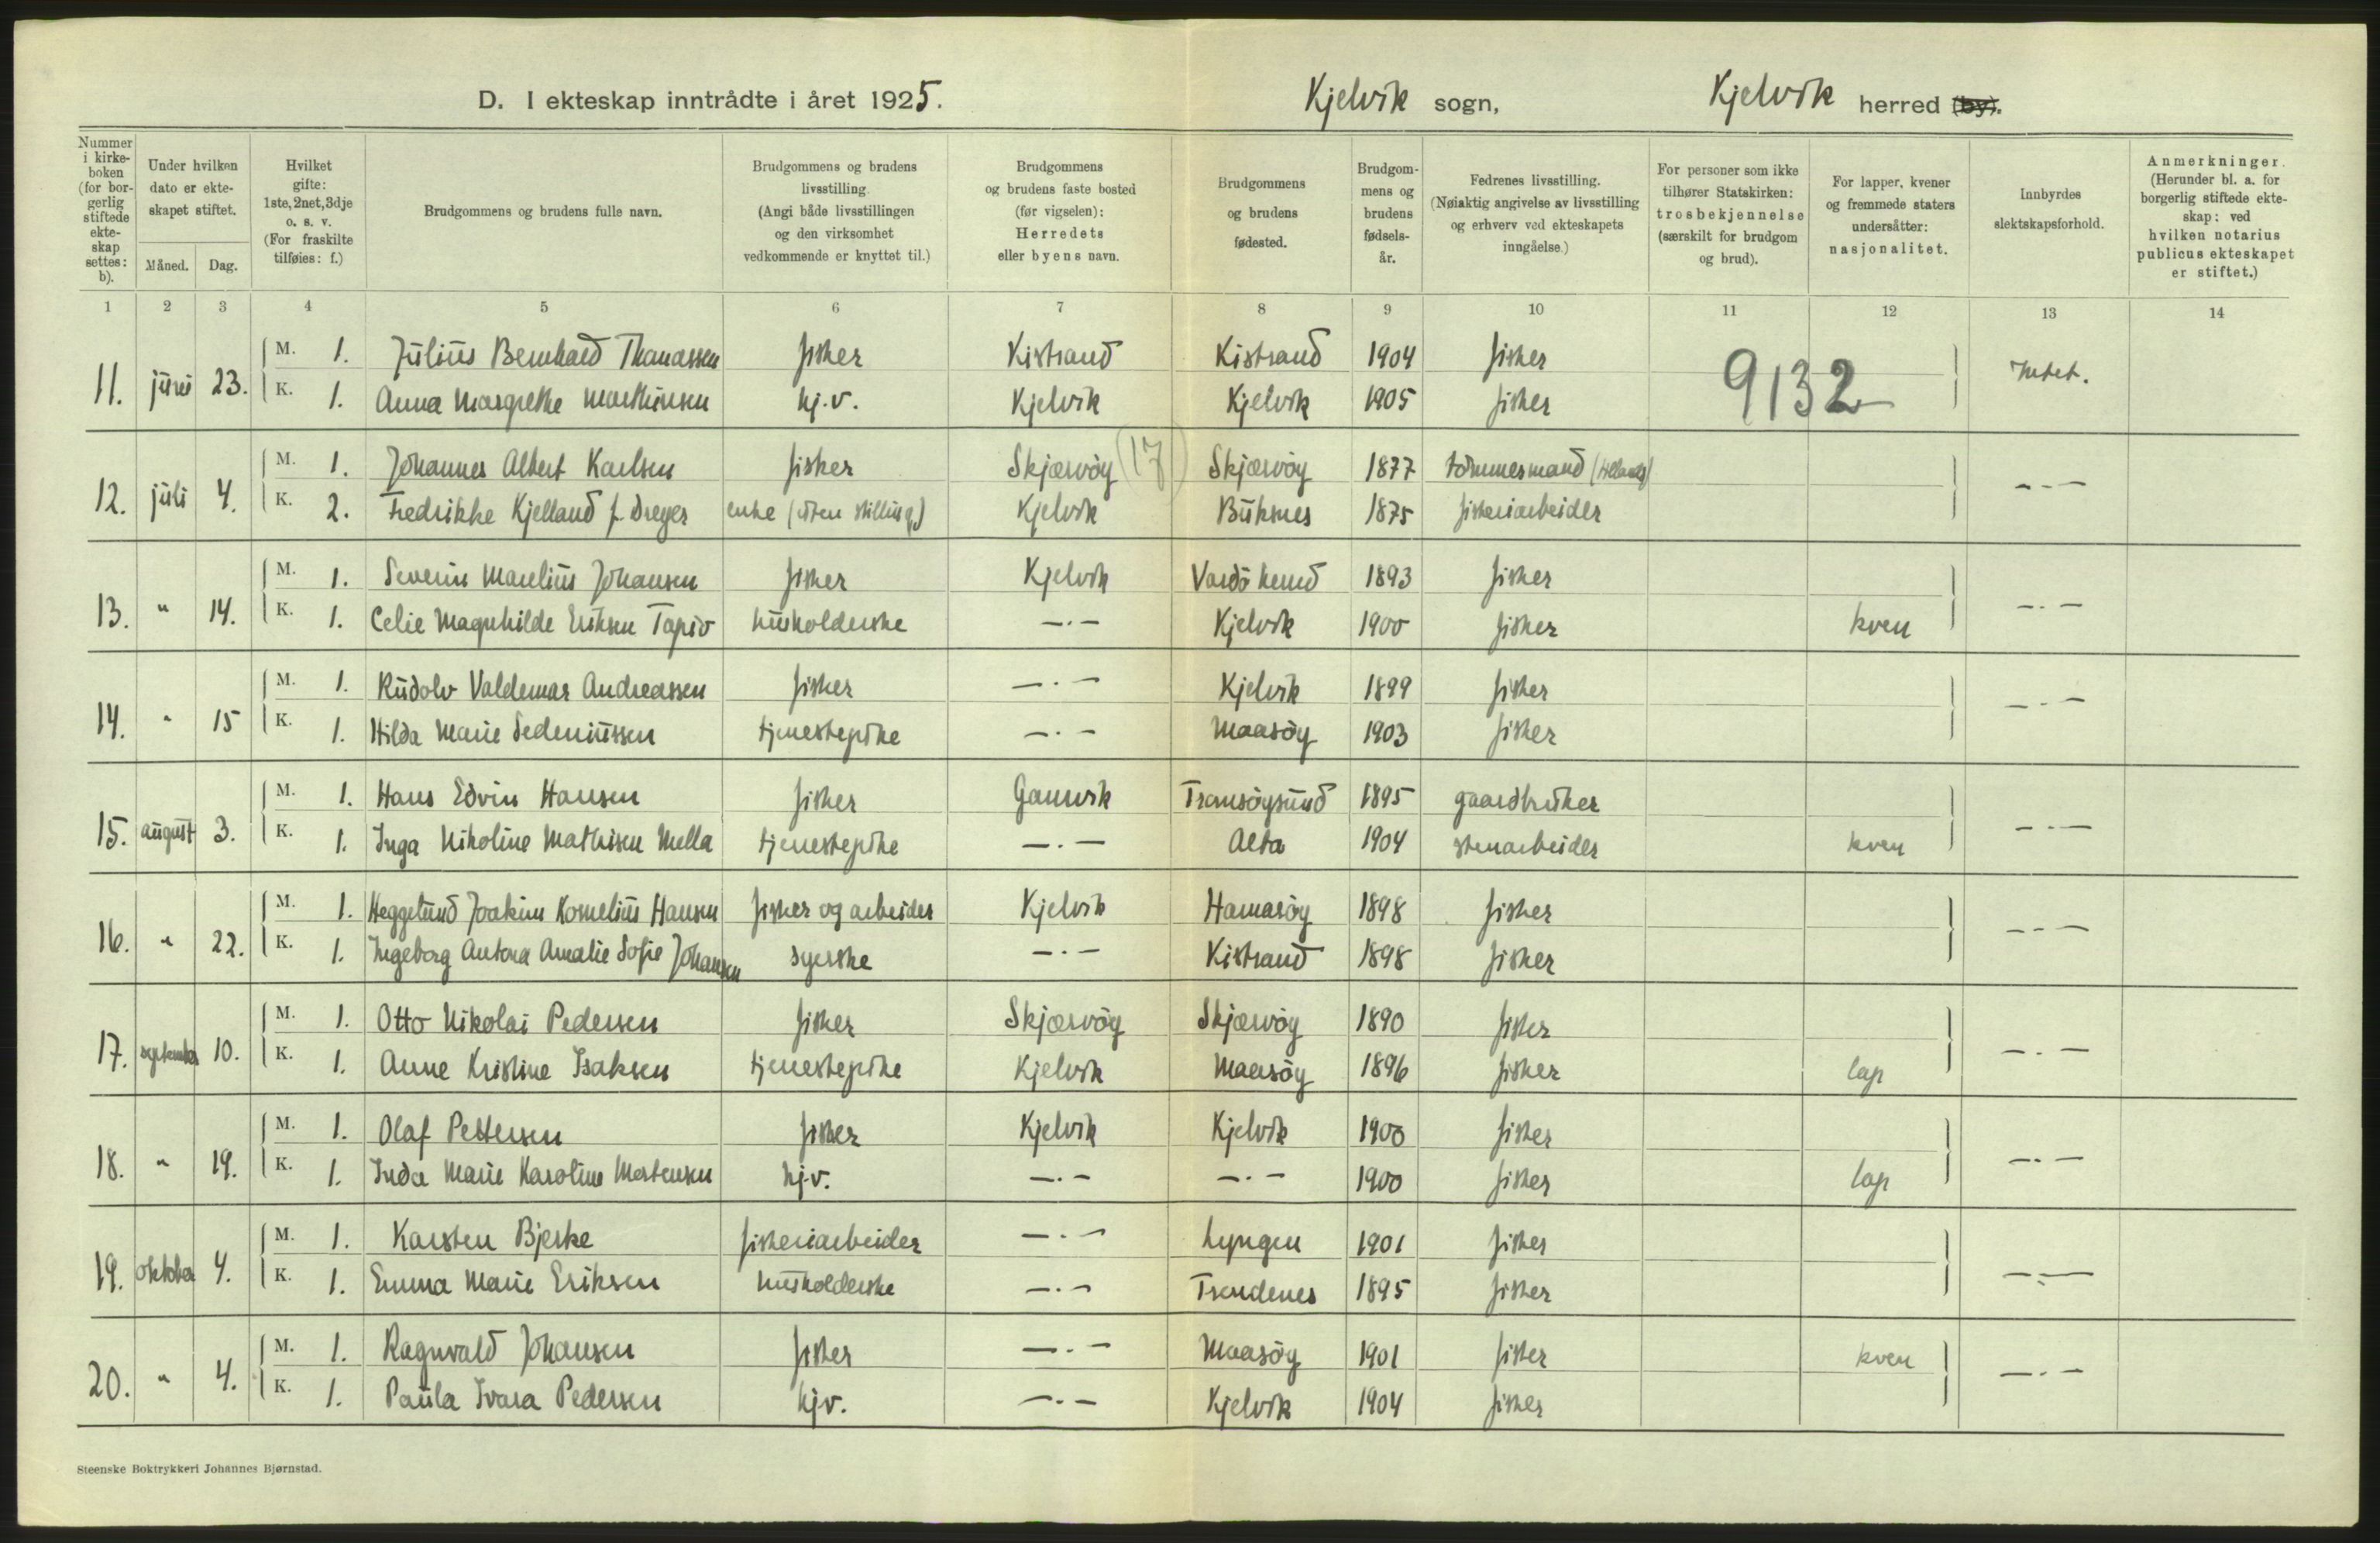 D. I ekteskap inntrådte i året 1925. Kjelvik sogn, Kjelvik herred (by).
Nummer i kirkeboken (for borgerlig stiftede ekteskap settes: b).
Under hvilken dato er ekteskapet stiftet.
Måned. Dag.
Hvilket gifte: 1ste, 2net, 3dje o. s. v. (For fraskilte tilføies: f.)
Brudgommens og brudens fulle navn.
Brudgommens og brudens livsstilling. (Angi både livsstillingen og den virksomhet vedkommende er knyttet til.)
Brudgommens og brudens faste bosted (før vigselen): Herredets eller byens navn.
Brudgommens og brudens fødested.
Brudgommens og brudens fødselsår.
Fedrenes livsstilling. (Nøiaktig angivelse av livsstilling og erhverv ved ekteskapets inngåelse.)
For personer som ikke tilhører Statskirken: trosbekjennelse (særskilt for brudgom og brud).
For lapper, kvener og fremmede staters undersåtter: nasjonalitet.
Innbyrdes slektskapsforhold.
Anmerkninger. (Herunder bl. a. for borgerlig stiftede ekteskap: ved hvilken notarius publicus ekteskapet er stiftet.)
1 2 3 4 5 6 7 8 9 10 11 12 13 14
M. 1. Julius Bernhard Thomassen fisker Kistrand Kistrand 1904 fisker
11. juni 23. 9132 Intet.
K. 1. Anna Margrethe Mathisen hj.v. Kjelvik Kjelvik 1905 fisker
M. 1. Johannes Albert Karlsen fisker Skjærvöy (17) Skjærvöy 1877 tömmermand
12. juli 4. - - -
K. 2. Fredrikke Kjelland f. Dreyer enke (uten stilling) Kjelvik Buksnes 1875 fiskeriarbeider
M. 1. Severin Marelius Johansen fisker Kjelvik Vardö herred 1893 fisker
13. " 14. - . -
K. 1. Celie Magnhilde Eriksen Tapio husholderske - . - Kjelvik 1900 fisker kven
M. 1. Rudolv Valdemar Andreassen fisker - . - Kjelvik 1899 fisker
14. " 15 - . -
K. 1. Hilda Marie Sedeniussen tjenestepike - . - Maasöy 1903 fisker
M. 1. Hans Edvin Hansen fisker Gamvik Tromsöysund 1895 gaardbruker
15. august 3. - . -
K. 1. Inga Nikoline Mathisen Mella tjenestepike - . - Alta 1904 stenarbeider kven
M. 1. Heggelund Joakim Kornelius Hansen fisker og arbeider Kjelvik Hamaröy 1898 fisker
16. " 22. - - -
K. 1. Ingeborg Antona Amalie Sofie Johansen syerske - . - Kistrand 1898 fisker
M. 1. Otto Nikolai Pedersen fisker Skjærvöy Skjærvöy 1890 fisker
17. september 10. - . -
K. 1. Anne Kristine Isaksen tjenestepike Kjelvik Maasöy 1896 fisker lap
M. 1. Olaf Pettersen fisker Kjelvik Kjelvik 1900 fisker
18. " 19. - . -
K. 1. Inda Marie Karoline Mortensen hj.v. - . - - . - 1900 fisker lap
M. 1. Karsten Bjerke fiskeriarbeider - . - Lyngen 1901 fisker
19. oktober 4. - . -
K. 1. Emma Marie Eriksen husholderske - . - Trondenes 1895 fisker
M. 1. Ragnvald Johansen fisker - . - Maasöy 1901 fisker kven
20. " 4. - . -
K. 1. Paula Ivara Pedersen hjv. - . - Kjelvik 1904 fisker
Steenske Boktrykkeri Johannes Bjørnstad.